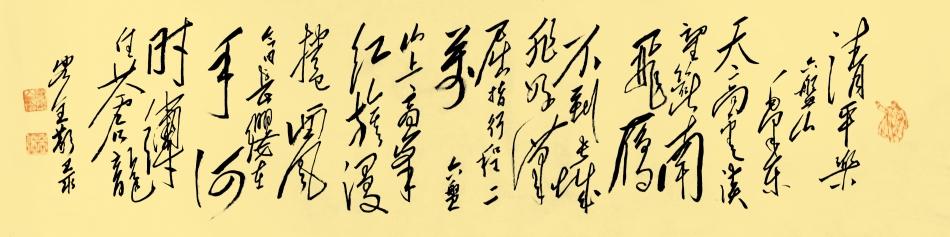 清平樂
六盤山
天高雲淡
望斷南
飛雁
不到長城
非好漢
屈指行程二
萬 六盤
山上高峰
红旗漫
捲西風
今日長纓在
手 何
时縛
住苍龍